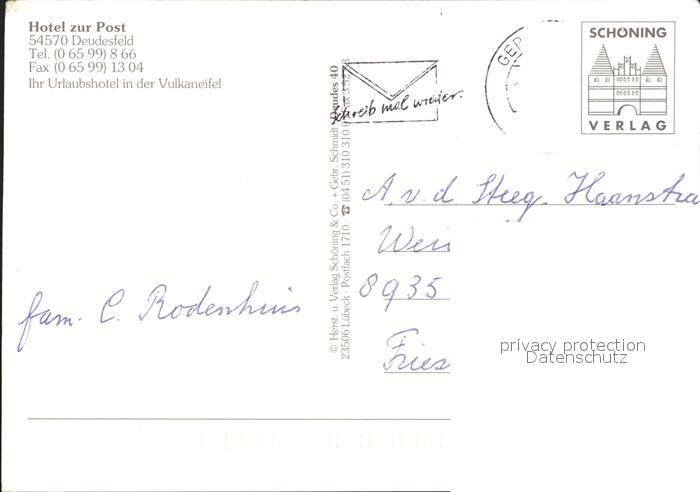 Hotel zur Post
54570 Deudesfeld
Tel. (0 65 99) 8 66
Fax (0 65 99) 13 04
Ihr Urlaubshotel in der Vulkaneifel
Schreib mal wieder.
GEP
SCHÖNING
VERLAG
© Herst. u. Verlag Schöning & Co. + Gebr. Schmidt
23506 Lübeck · Postfach 1710 · ☎ (04 51) 310 310
Deudes 40
A. v. d. Steeg. Haanstra
Wei
8935
Fries
fam. C. Rodenhuis
privacy protection
Datenschutz